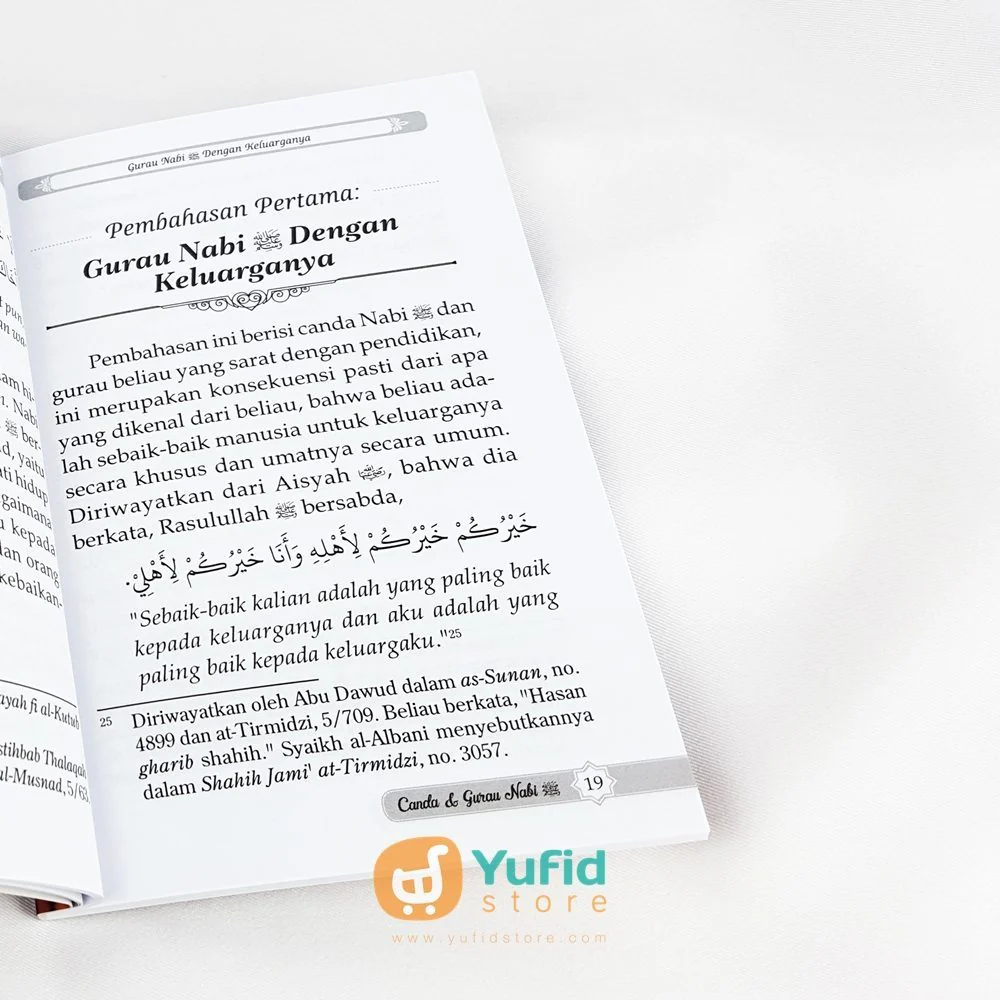 Gurau Nabi ﷺ Dengan Keluarganya
Pembahasan Pertama:
Gurau Nabi ﷺ Dengan
Keluarganya
Pembahasan ini berisi canda Nabi ﷺ dan
gurau beliau yang sarat dengan pendidikan,
ini merupakan konsekuensi pasti dari apa
yang dikenal dari beliau, bahwa beliau ada-
lah sebaik-baik manusia untuk keluarganya
secara khusus dan umatnya secara umum.
Diriwayatkan dari Aisyah, bahwa dia
berkata, Rasulullah ﷺ bersabda,
خَيْرُكُمْ خَيْرُكُمْ لِأَهْلِهِ وَأَنَا خَيْرُكُمْ لِأَهْلِيْ.
"Sebaik-baik kalian adalah yang paling baik
kepada keluarganya dan aku adalah yang
paling baik kepada keluargaku."25
25 Diriwayatkan oleh Abu Dawud dalam as-Sunan, no.
4899 dan at-Tirmidzi, 5/709. Beliau berkata, "Hasan
gharib shahih." Syaikh al-Albani menyebutkannya
dalam Shahih Jami' at-Tirmidzi, no. 3057.
Canda & Gurau Nabi ﷺ 19
Yufid
store
www.yufidstore.com